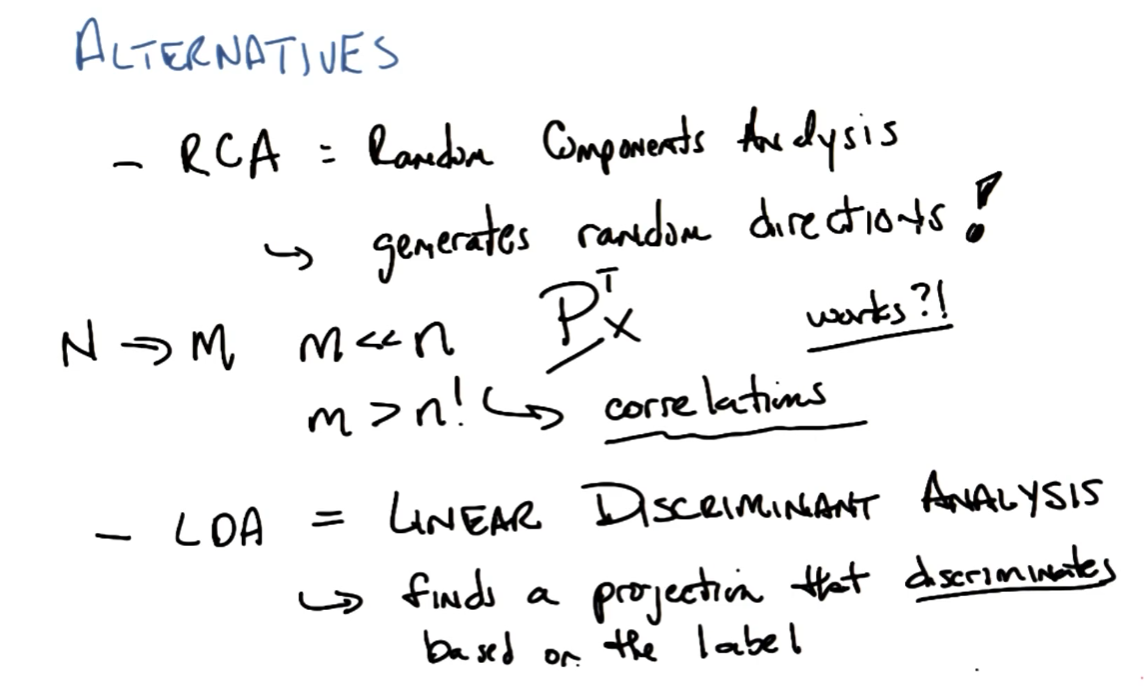 ALTERNATIVES
- RCA = Random Components Analysis
↳ generates random directions!
P^T x works?!
N ⇒ M m << n
m > n! ↳ correlations
- LDA = LINEAR DISCRIMINANT ANALYSIS
↳ finds a projection that discriminates
based on the label